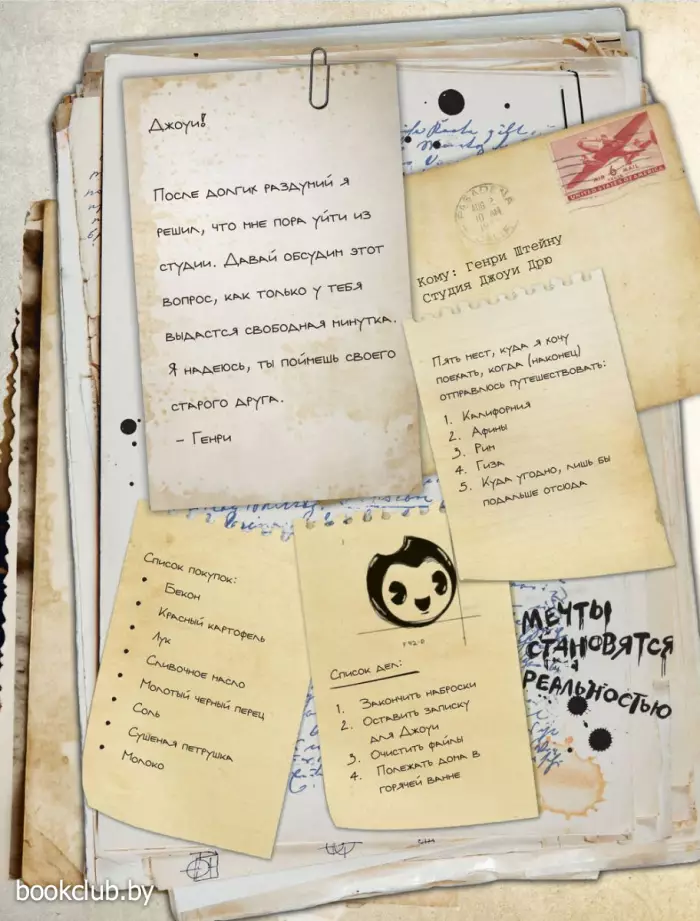 Джоуи!
После долгих раздумий я
решил, что мне пора уйти из
студии. Давай обсудим этот
вопрос, как только у тебя
выдастся свободная минутка.
Я надеюсь, ты поймешь своего
старого друга.
– Генри
PASADENA
10 AM
AIR MAIL
6¢
UNITED STATES OF AMERICA
Кому: Генри Штейну
Студия Джоуи Дрю
Пять мест, куда я хочу
поехать, когда (наконец)
отправлюсь путешествовать:
1. Калифорния
2. Афины
3. Рим
4. Гиза
5. Куда угодно, лишь бы
подальше отсюда
Список покупок:
• Бекон
• Красный картофель
• Лук
• Сливочное масло
• Молотый черный перец
• Соль
• Сушеная петрушка
• Молоко
Список дел:
1. Закончить наброски
2. Оставить записку
для Джоуи
3. Очистить файлы
4. Полежать дома в
горячей ванне
МЕЧТЫ
СТАНОВЯТСЯ
РЕАЛЬНОСТЬЮ
bookclub.by